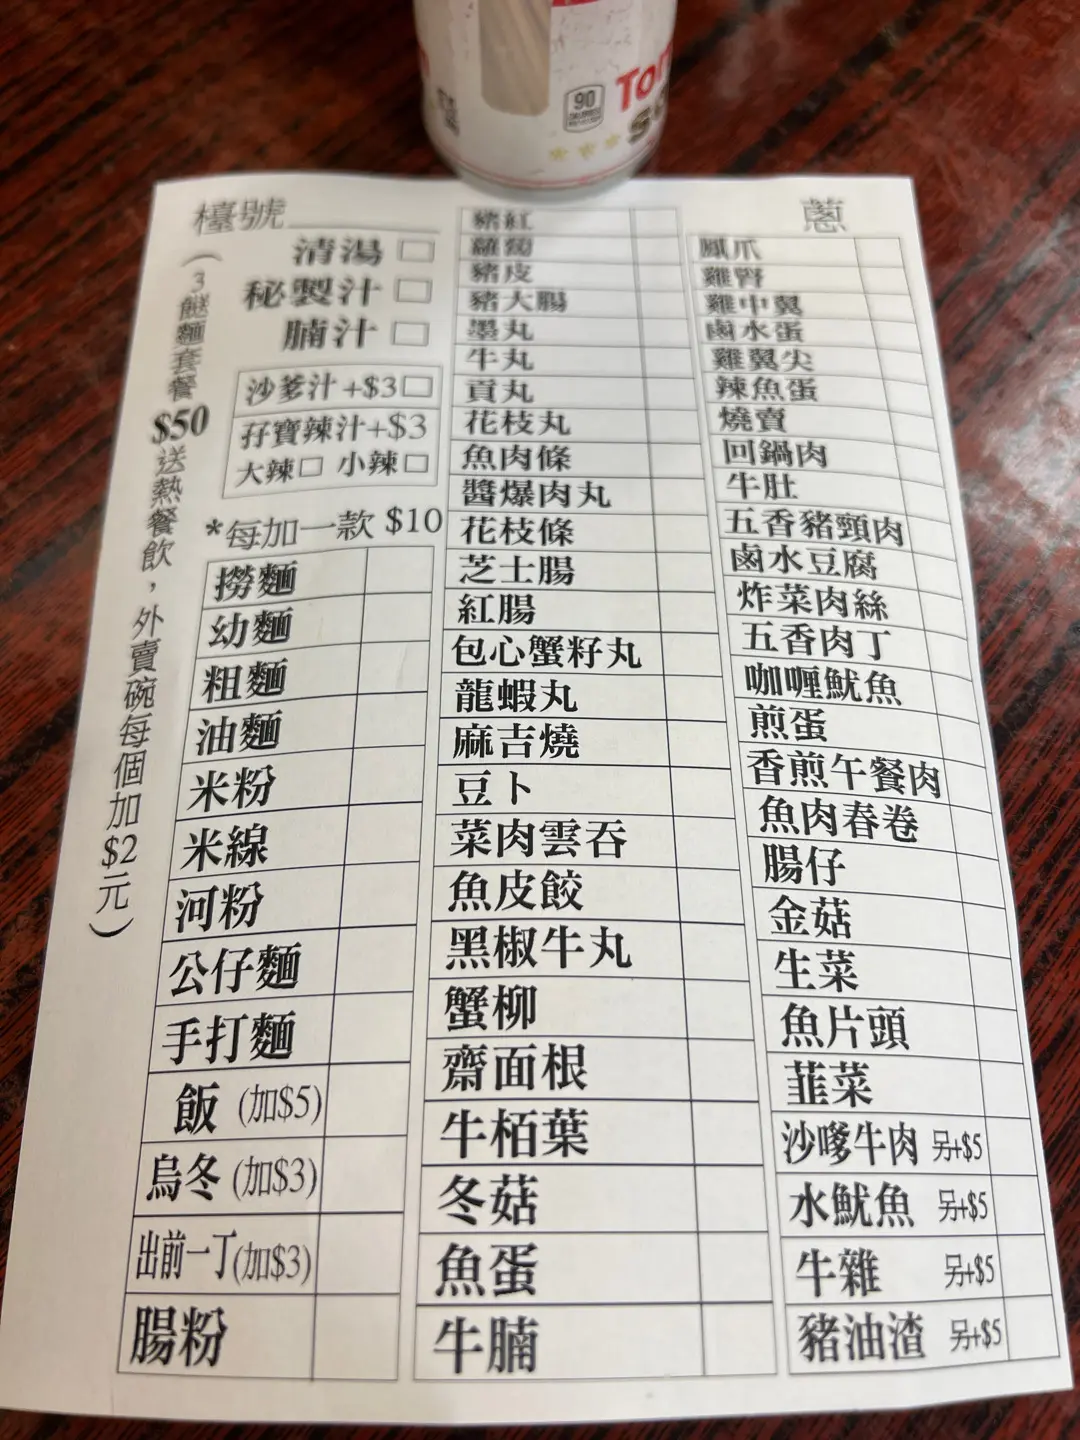 90
CALORIES
Tom
檯號
(3餸麵套餐$50送熱餐飲，外賣碗每個加$2元)
清湯 □
秘製汁 □
腩汁 □
沙爹汁 +$3□
孖寶辣汁+$3
大辣□ 小辣□
*每加一款 $10
撈麵
幼麵
粗麵
油麵
米粉
米線
河粉
公仔麵
手打麵
飯 (加$5)
烏冬 (加$3)
出前一丁(加$3)
腸粉
豬紅
蘿蔔
豬皮
豬大腸
墨丸
牛丸
貢丸
花枝丸
魚肉條
醬爆肉丸
花枝條
芝士腸
紅腸
包心蟹籽丸
龍蝦丸
麻吉燒
豆卜
菜肉雲吞
魚皮餃
黑椒牛丸
蟹柳
齋面根
牛栢葉
冬菇
魚蛋
牛腩
蔥
鳳爪
雞腎
雞中翼
鹵水蛋
雞翼尖
辣魚蛋
燒賣
回鍋肉
牛肚
五香豬頸肉
鹵水豆腐
炸菜肉絲
五香肉丁
咖喱魷魚
煎蛋
香煎午餐肉
魚肉春卷
腸仔
金菇
生菜
魚片頭
韮菜
沙嗲牛肉 另+$5
水魷魚 另+$5
牛雜 另+$5
豬油渣 另+$5